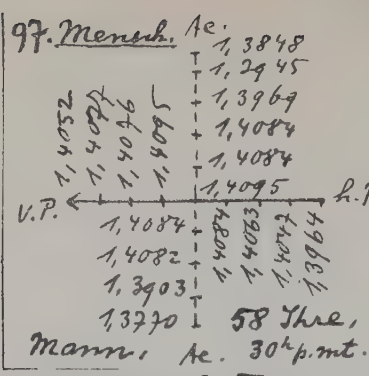 97. Mensch. Ae.
1,3848
1,3945
1,3969
1,4084
1,4084
1,4095
1,4052
1,4076
1,4095
V.P.
h.P.
1,4084
1,4082
1,3903
1,3770
1,4084
1,4063
1,4047
1,3964
58 Ihre,
Mann, Ae. 30h p.mt.